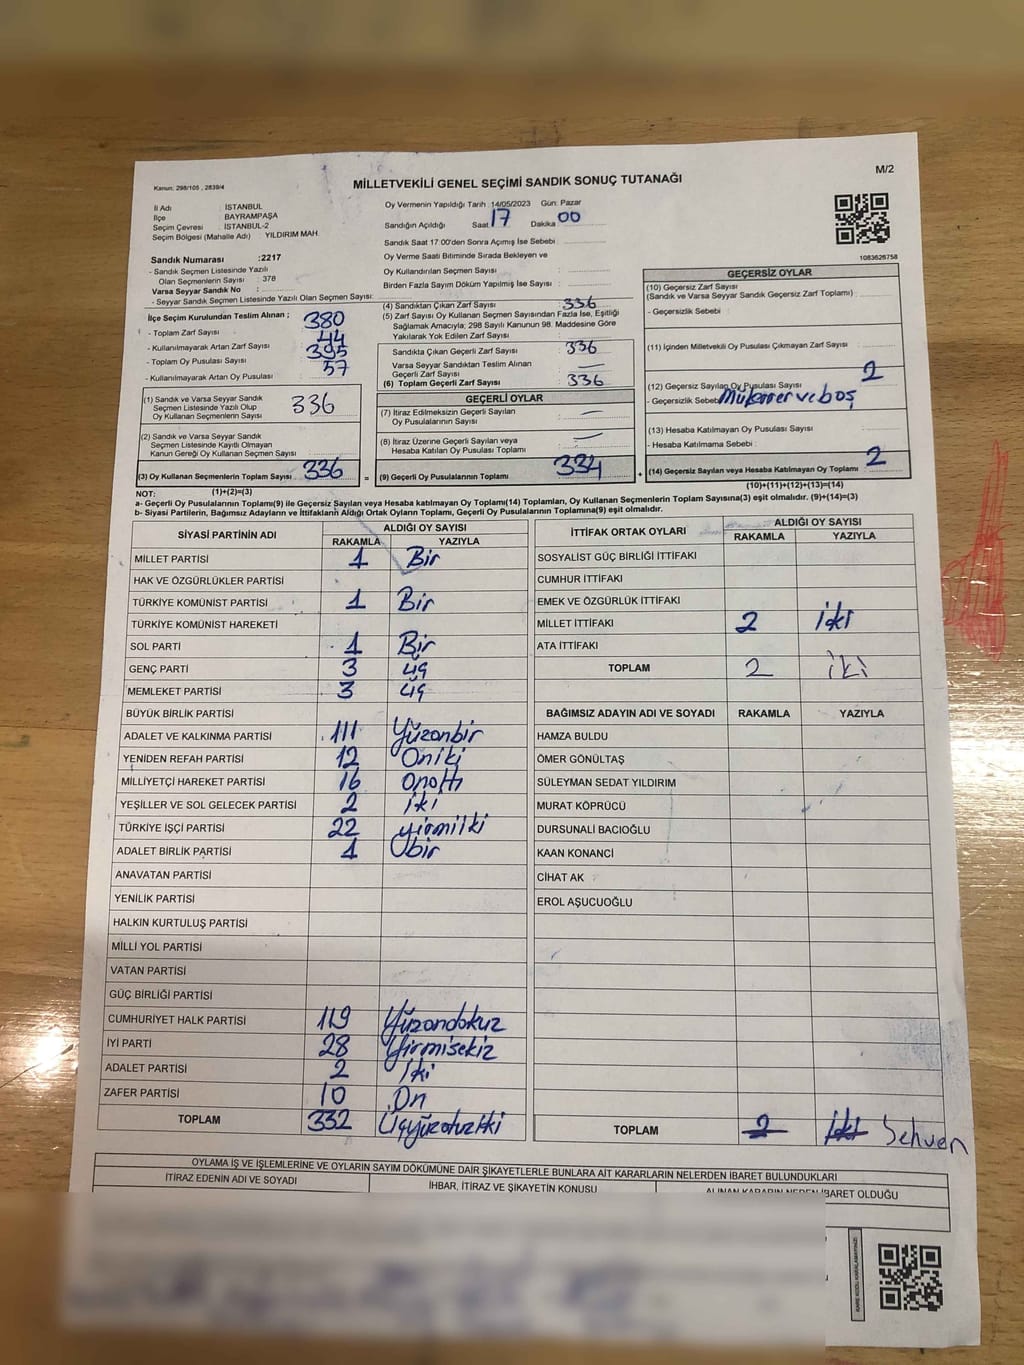 M/2
Kanun: 298/105 , 2839/4
MİLLETVEKİLİ GENEL SEÇİMİ SANDIK SONUÇ TUTANAĞI
İl Adı : İSTANBUL
İlçe : BAYRAMPAŞA
Seçim Çevresi : İSTANBUL-2
Seçim Bölgesi (Mahalle Adı) YILDIRIM MAH.
Sandık Numarası :2217
- Sandık Seçmen Listesinde Yazılı
Olan Seçmenlerin Sayısı : 376
Varsa Seyyar Sandık No :
- Seyyar Sandık Seçmen Listesinde Yazılı Olan Seçmen Sayısı:
Oy Vermenin Yapıldığı Tarih :14/05/2023 Gün: Pazar
Sandığın Açıldığı Saat 17 Dakika 00
Sandık Saat 17:00'den Sonra Açımış İse Sebebi
Oy Verme Saati Bitiminde Sırada Bekleyen ve
Oy Kullandırılan Seçmen Sayısı
Birden Fazla Sayım Döküm Yapılmış İse Sayısı :
1083626758
İlçe Seçim Kurulundan Teslim Alınan ;
- Toplam Zarf Sayısı 380
- Kullanılmayarak Artan Zarf Sayısı 44
- Toplam Oy Pusulası Sayısı 395
- Kullanılmayarak Artan Oy Pusulası 57
(1) Sandık ve Varsa Seyyar Sandık
Seçmen Listesinde Yazılı Olup
Oy Kullanan Seçmenlerin Sayısı 336
(2) Sandık ve Varsa Seyyar Sandık
Seçmen Listesinde Kayıtlı Olmayan
Kanun Gereği Oy Kullanan Seçmen Sayısı
(3) Oy Kullanan Seçmenlerin Toplam Sayısı 336
(1)+(2)=(3)
(4) Sandıktan Çıkan Zarf Sayısı 336
(5) Zarf Sayısı Oy Kullanan Seçmen Sayısından Fazla İse, Eşitliği
Sağlamak Amacıyla; 298 Sayılı Kanunun 98. Maddesine Göre
Yakılarak Yok Edilen Zarf Sayısı
Sandıkta Çıkan Geçerli Zarf Sayısı 336
Varsa Seyyar Sandıktan Teslim Alınan
Geçerli Zarf Sayısı —
(6) Toplam Geçerli Zarf Sayısı 336
GEÇERLİ OYLAR
(7) İtiraz Edilmeksizin Geçerli Sayılan
Oy Pusulalarının Sayısı —
(8) İtiraz Üzerine Geçerli Sayılan veya
Hesaba Katılan Oy Pusulası Toplamı —
= (9) Geçerli Oy Pusulalarının Toplamı 334
GEÇERSİZ OYLAR
(10) Geçersiz Zarf Sayısı
(Sandık ve Varsa Seyyar Sandık Geçersiz Zarf Toplamı)
- Geçersizlik Sebebi :
(11) İçinden Milletvekili Oy Pusulası Çıkmayan Zarf Sayısı
(12) Geçersiz Sayılan Oy Pusulası Sayısı 2
- Geçersizlik Sebebi
(13) Hesaba Katılmayan Oy Pusulası Sayısı
- Hesaba Katılmama Sebebi
+ (14) Geçersiz Sayılan veya Hesaba Katılmayan Oy Toplamı 2
(10)+(11)+(12)+(13)=(14)
NOT:
a- Geçerli Oy Pusulalarının Toplamı(9) ile Geçersiz Sayılan veya Hesaba katılmayan Oy Toplamı(14) Toplamları, Oy Kullanan Seçmenlerin Toplam Sayısına(3) eşit olmalıdır. (9)+(14)=(3)
b- Siyasi Partilerin, Bağımsız Adayların ve İttifakların Aldığı Ortak Oyların Toplamı, Geçerli Oy Pusulalarının Toplamına(9) eşit olmalıdır.
SİYASİ PARTİNİN ADI ALDIĞI OY SAYISI
RAKAMLA YAZIYLA
MİLLET PARTİSİ 1 Bir
HAK VE ÖZGÜRLÜKLER PARTİSİ
TÜRKİYE KOMÜNİST PARTİSİ 1 Bir
TÜRKİYE KOMÜNİST HAREKETİ
SOL PARTİ 1 Bir
GENÇ PARTİ 3 üç
MEMLEKET PARTİSİ 3 üç
BÜYÜK BİRLİK PARTİSİ
ADALET VE KALKINMA PARTİSİ 111 Yüzonbir
YENİDEN REFAH PARTİSİ 12 Oniki
MİLLİYETÇİ HAREKET PARTİSİ 16 onaltı
YEŞİLLER VE SOL GELECEK PARTİSİ 2 iki
TÜRKİYE İŞÇİ PARTİSİ 22 yirmiiki
ADALET BİRLİK PARTİSİ 1 bir
ANAVATAN PARTİSİ
YENİLİK PARTİSİ
HALKIN KURTULUŞ PARTİSİ
MİLLİ YOL PARTİSİ
VATAN PARTİSİ
GÜÇ BİRLİĞİ PARTİSİ
CUMHURİYET HALK PARTİSİ 119 Yüzondokuz
İYİ PARTİ 28 Yirmisekiz
ADALET PARTİSİ 2 iki
ZAFER PARTİSİ 10 On
TOPLAM 332 Üçyüzotuziki
İTTİFAK ORTAK OYLARI ALDIĞI OY SAYISI
RAKAMLA YAZIYLA
SOSYALİST GÜÇ BİRLİĞİ İTTİFAKI
CUMHUR İTTİFAKI
EMEK VE ÖZGÜRLÜK İTTİFAKI
MİLLET İTTİFAKI 2 iki
ATA İTTİFAKI
TOPLAM 2 iki
BAĞIMSIZ ADAYIN ADI VE SOYADI RAKAMLA YAZIYLA
HAMZA BULDU
ÖMER GÖNÜLTAŞ
SÜLEYMAN SEDAT YILDIRIM
MURAT KÖPRÜCÜ
DURSUNALİ BACIOĞLU
KAAN KONANCİ
CİHAT AK
EROL AŞUCUOĞLU
TOPLAM 2 iki Sehven
OYLAMA İŞ VE İŞLEMLERİNE VE OYLARIN SAYIM DÖKÜMÜNE DAİR ŞİKAYETLERLE BUNLARA AİT KARARLARIN NELERDEN İBARET BULUNDUKLARI
İTİRAZ EDENİN ADI VE SOYADI İHBAR, İTİRAZ VE ŞİKAYETİN KONUSU ALINAN KARARIN NEDEN İBARET OLDUĞU